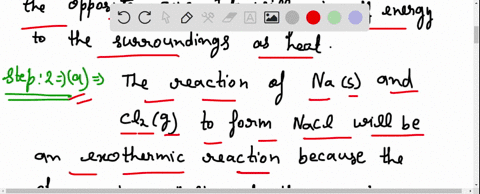 the oppos energy
to the surroundings as heat.
Step:2 => (a) => The reaction of Na(s) and
Cl2(g) to form NaCl will be
an exothermic reaction because the